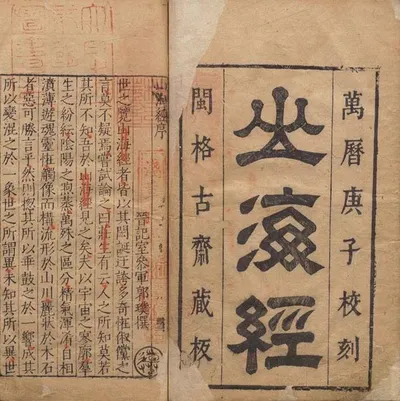 萬曆庚子校刻
山海經
閩格古齋藏板
山海經序
晉記室參軍郭璞撰
世之覽山海經者皆以其閎誕迂誇多奇怪俶儻之
言莫不疑焉嘗試論之曰莊生有云人之所知莫若
其所不知吾於山海經見之矣夫以宇宙之寥廓羣
生之紛紜陰陽之煦蒸萬殊之區分精氣渾淆自相
濆薄遊魂靈怪觸像而構流形於山川麗狀於木石
者惡可勝言乎然則揔其所以乖鼓之於一響成其
所以變混之於一象世之所謂異未知其所以異世